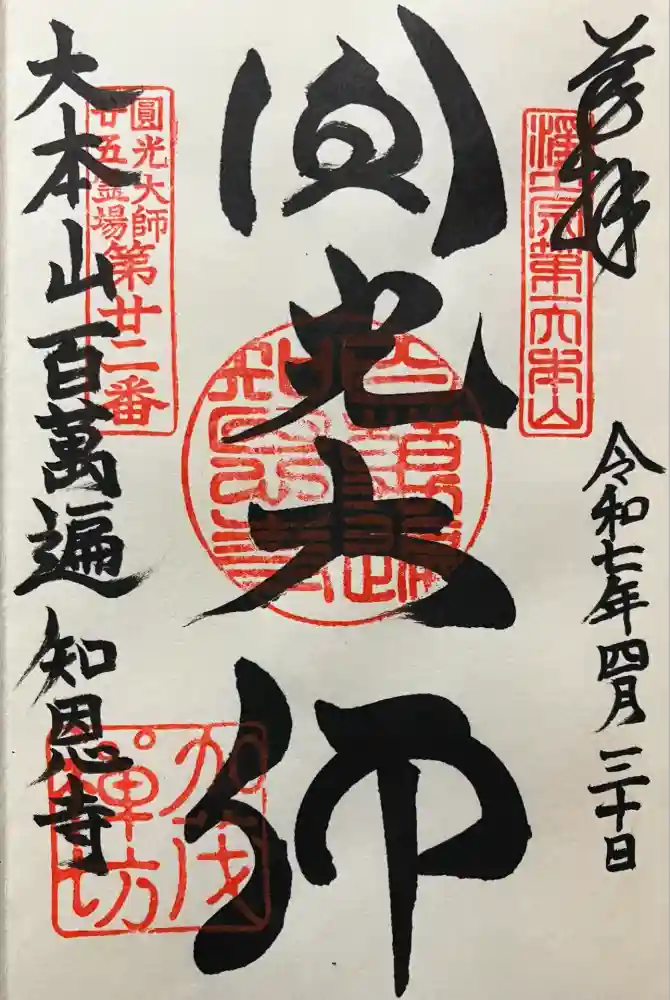 奉拝
令和七年四月三十日
浄土宗第六本山
圓光大師
大本山百萬遍知恩寺
圓光大師
廿五霊場
第廿二番
加茂
禅坊